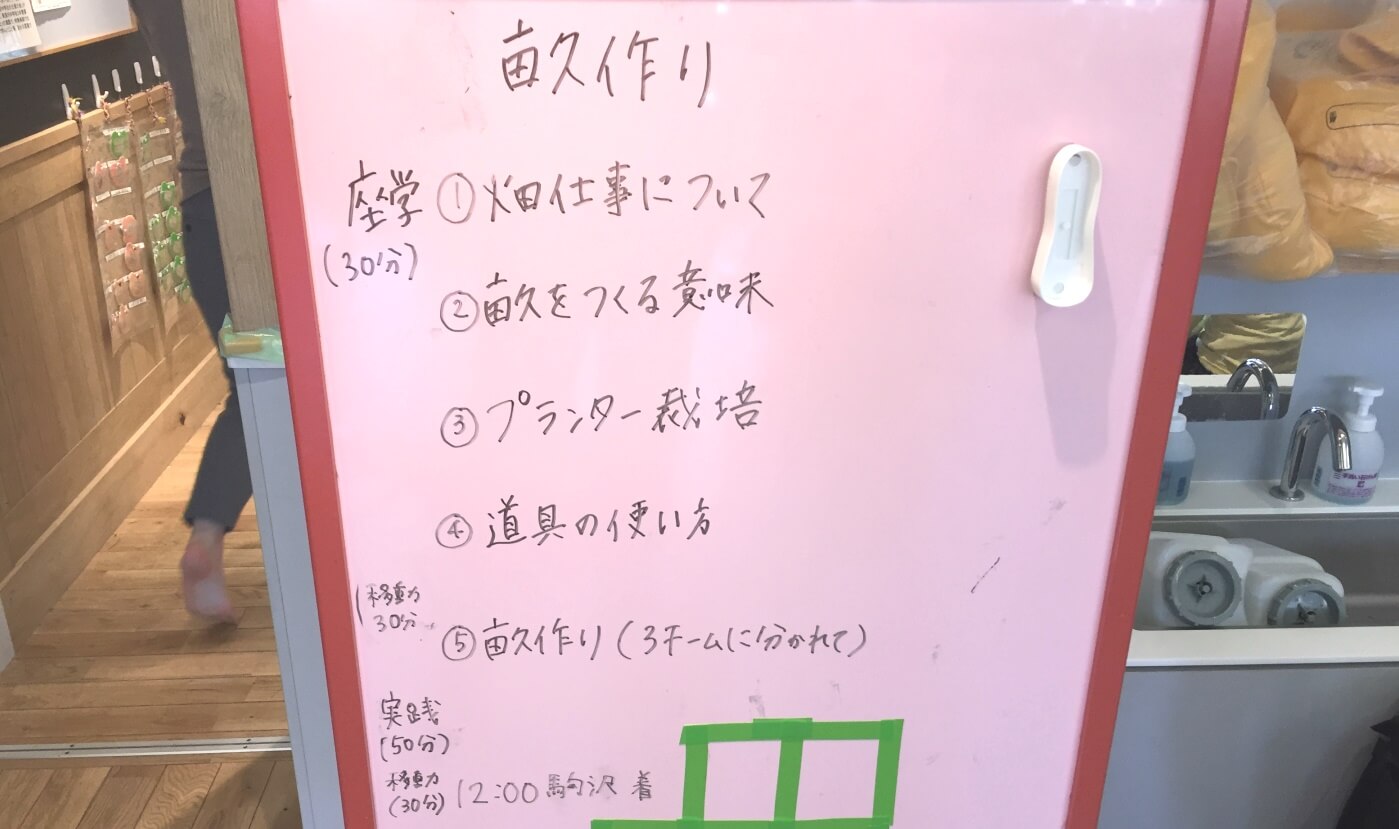 畝作り
座学 ①畑仕事について
(30分)
②畝をつくる意味
③プランター栽培
④道具の使い方
移動
30分
⑤畝作り(3チームに分かれて)
実践
(50分)
移動
(30分) 12:00 駒沢 着